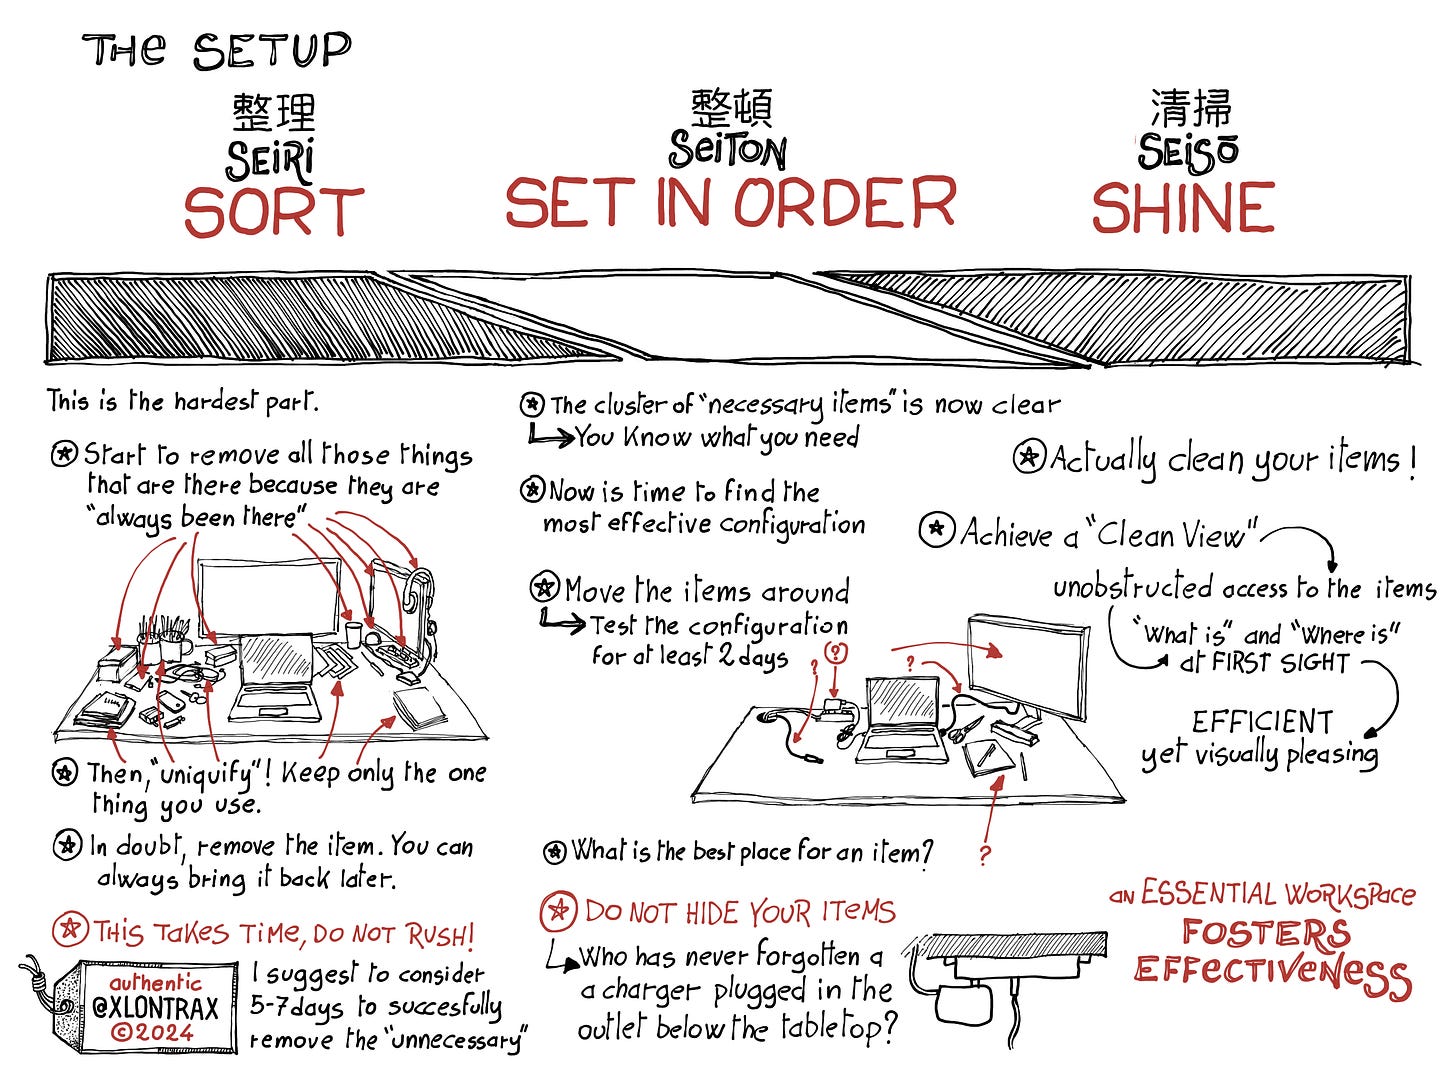 THE SETUP
整理
SEIRI
SORT
This is the hardest part.
Start to remove all those things
that are there because they are
"always been there"
Then, "uniquify"! Keep only the one
thing you use.
In doubt, remove the item. You can
always bring it back later.
THIS TAKES TIME, DO NOT RUSH!
I suggest to consider
5-7 days to succesfully
remove the "unnecessary"
authentic
@XLONTRAX
©2024
整頓
SEITON
SET IN ORDER
The cluster of "necessary items" is now clear
You Know what you need
Now is time to find the
most effective configuration
Move the items around
Test the configuration
for at least 2 days
?
?
?
?
What is the best place for an item?
DO NOT HIDE YOUR ITEMS
Who has never forgotten a
a charger plugged in the
outlet below the tabletop?
清掃
SEISŌ
SHINE
Actually clean your items!
Achieve a "Clean View"
unobstructed access to the items
"What is" and "Where is"
at FIRST SIGHT
EFFICIENT
yet visually pleasing
AN ESSENTIAL WORKSPACE
FOSTERS
EFFECTIVENESS